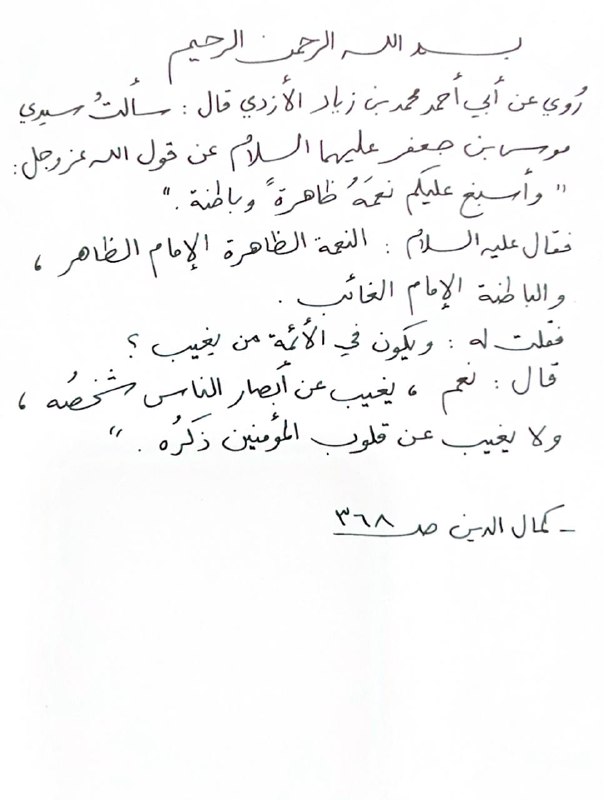 بسم الله الرحمن الرحيم
رُوي عن أبي أحمد محمد بن زياد الأزدي قال : سألتُ سيدي
موسى بن جعفر عليهما السلام عن قول الله عز وجل :
" وأسبغ عليكم نعمَهُ ظاهرةً وباطنة . "
فقال عليه السلام : النعمة الظاهرة الإمام الظاهر ،
والباطنة الإمام الغائب .
فقلت له : ويكون في الأئمة من يغيب ؟
قال : نعم ، يغيب عن أبصار الناس شخصُه ،
ولا يغيب عن قلوب المؤمنين ذكرُه . "
- كمال الدين صـ ٣٦٨